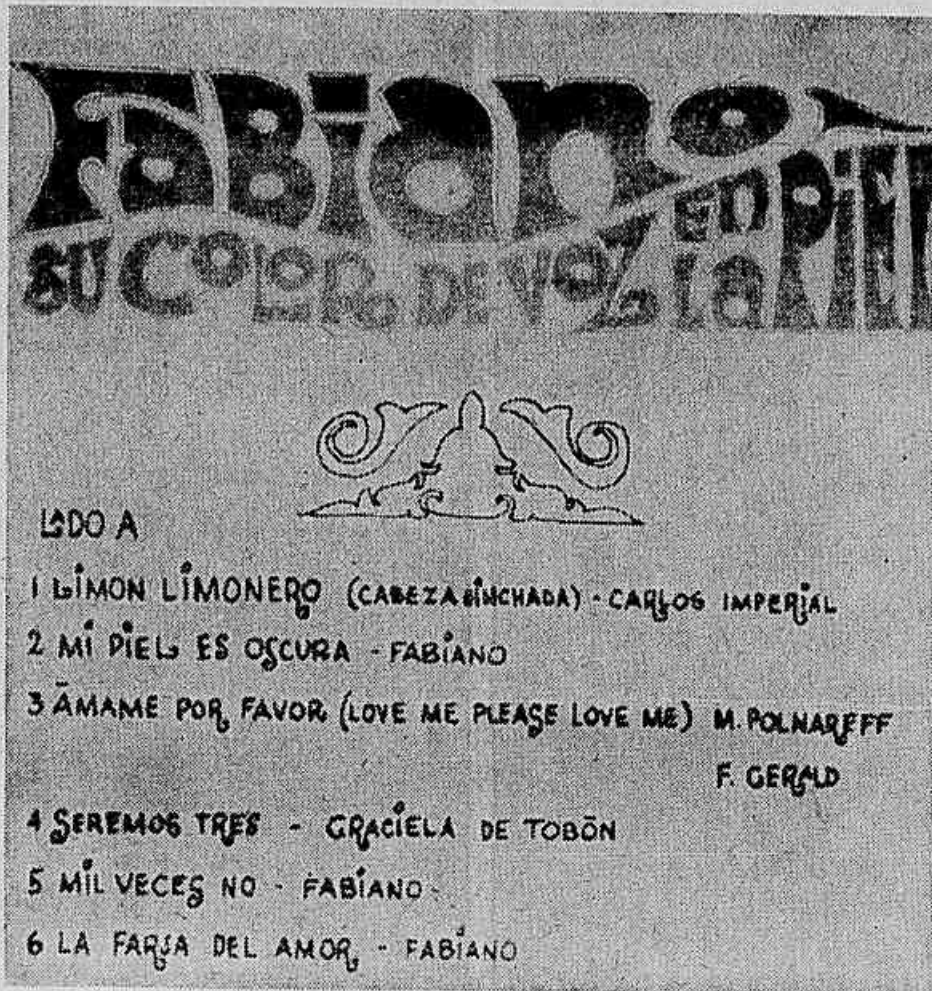 FABIANO
SU COLOR DE VOZ EN LA PIEL
LADO A
1 LIMON LIMONERO (CABEZA HINCHADA) - CARLOS IMPERIAL
2 MI PIEL ES OSCURA - FABIANO
3 ÁMAME POR FAVOR (LOVE ME PLEASE LOVE ME) M. POLNAREFF
F. GERALD
4 SEREMOS TRES - GRACIELA DE TOBÓN
5 MIL VECES NO - FABIANO -
6 LA FARSA DEL AMOR - FABIANO